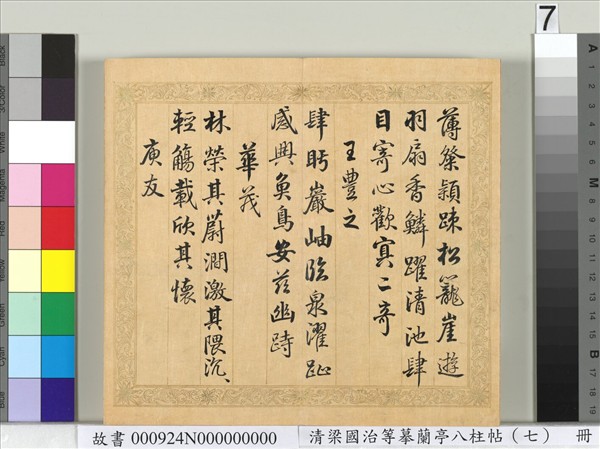 薄粲穎疎松籠崖遊
羽扇香鱗躍清池肆
目寄心歡冥二奇
王豐之
肆眄巖岫臨泉濯趾
感興魚鳥安茲幽跱
華茂
林榮其蔚澗激其隈汎、
輕觴載欣其懷
庾友
7
故書 000924N000000000
清梁國治等摹蘭亭八柱帖（七） 冊
Black
3/Color
White
Magenta
Red
Yellow
Green
Cyan
Blue
A
1
2
3
4
5
6
M
8
9
10
11
12
13
14
15
B
17
18
19